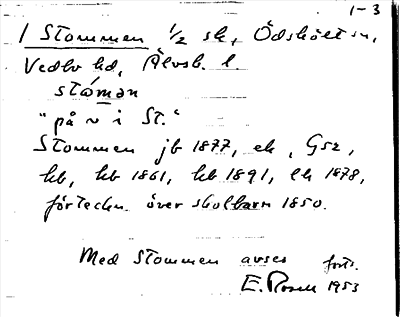 1-3
1 Stommen 1/2 sk, Ödsköлt sn,
Vedbo hd, Älvsb. l.
stȧ́mən
"på v i St."
Stommen jb 1877, ek, Gsz,
kb, hb 1861, hb 1891, lk 1878,
förteckn. över skolbarn 1850.
Med Stommen avses forts.
E. Rosell 1953